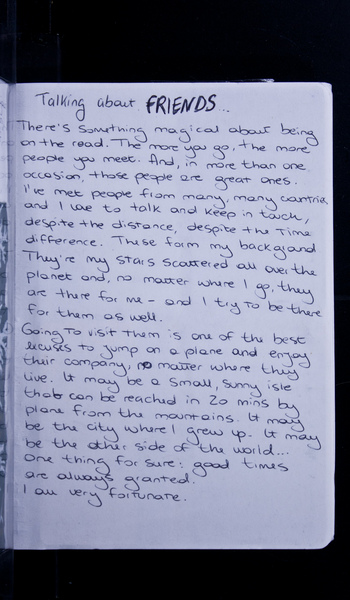 Talking about FRIENDS...
There's something magical about being
on the road. The more you go, the more
people you meet. And, in more than one
occasion, those people are great ones.
I've met people from many, many countries
and I love to talk and keep in touch,
despite the distance, despite the time
difference. These form my background
They're my stars scattered all over the
planet and, no matter where I go, they
are there for me - and I try to be there
for them as well.
Going to visit them is one of the best
excuses to jump on a plane and enjoy
their company, no matter where they
live. It may be a small, sunny isle
that can be reached in 20 mins by
plane from the mountains. It may
be the city where I grew up. It may
be the other side of the world...
One thing for sure: good times
are always granted.
I am very fortunate.